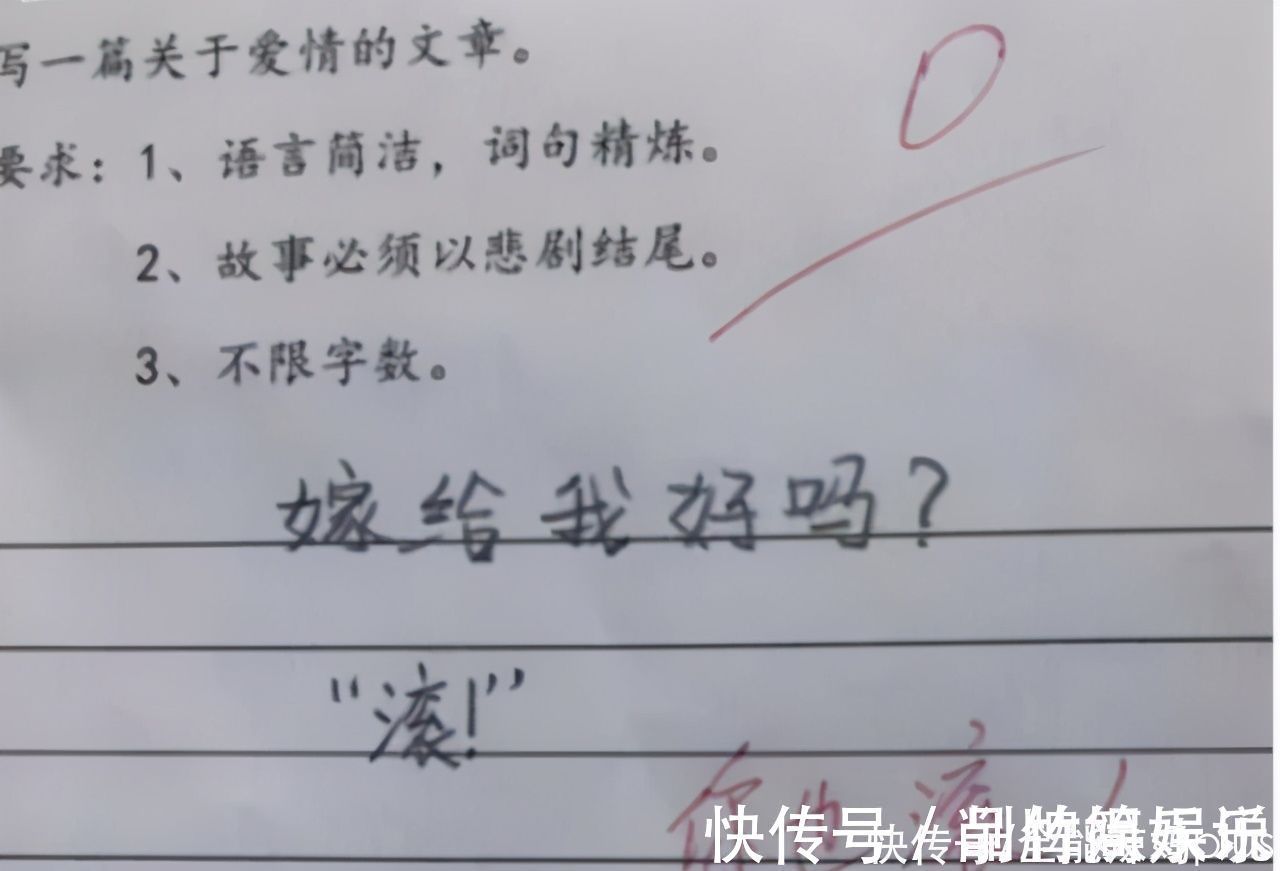 写一篇关于爱情的文章。
0
要求：1、语言简洁，词句精炼。
2、故事必须以悲剧结尾。
3、不限字数。
嫁给我好吗？
“滚！”
你也滚！
快传号/
快传号